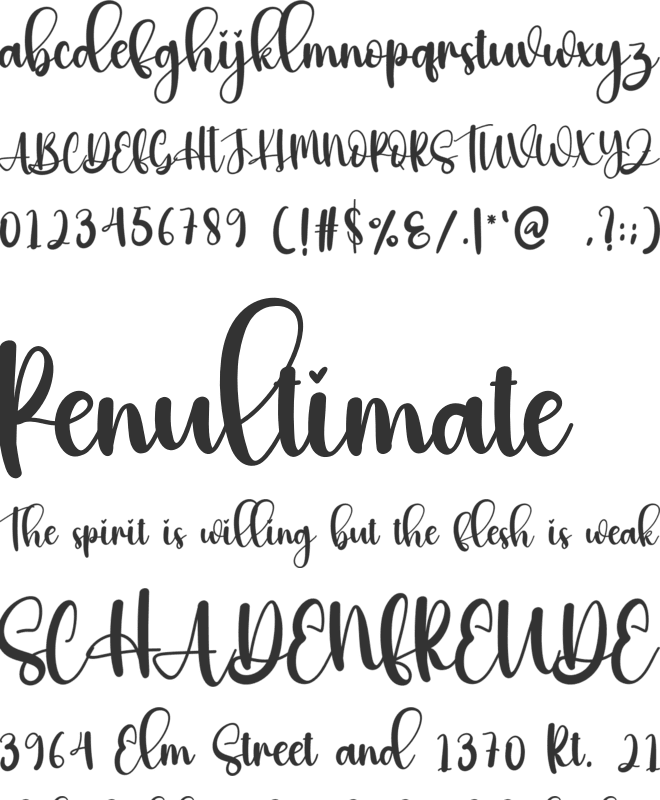 abcdefghijklmnopqrstuvwxyz
ABCDEFGHIJKLMNOPQRSTUVWXYZ
0123456789 (!#$%&/.|*'@ ,?:;)
Penultimate
The spirit is willing but the flesh is weak
SCHADENFREUDE
3964 Elm Street and 1370 Rt. 21